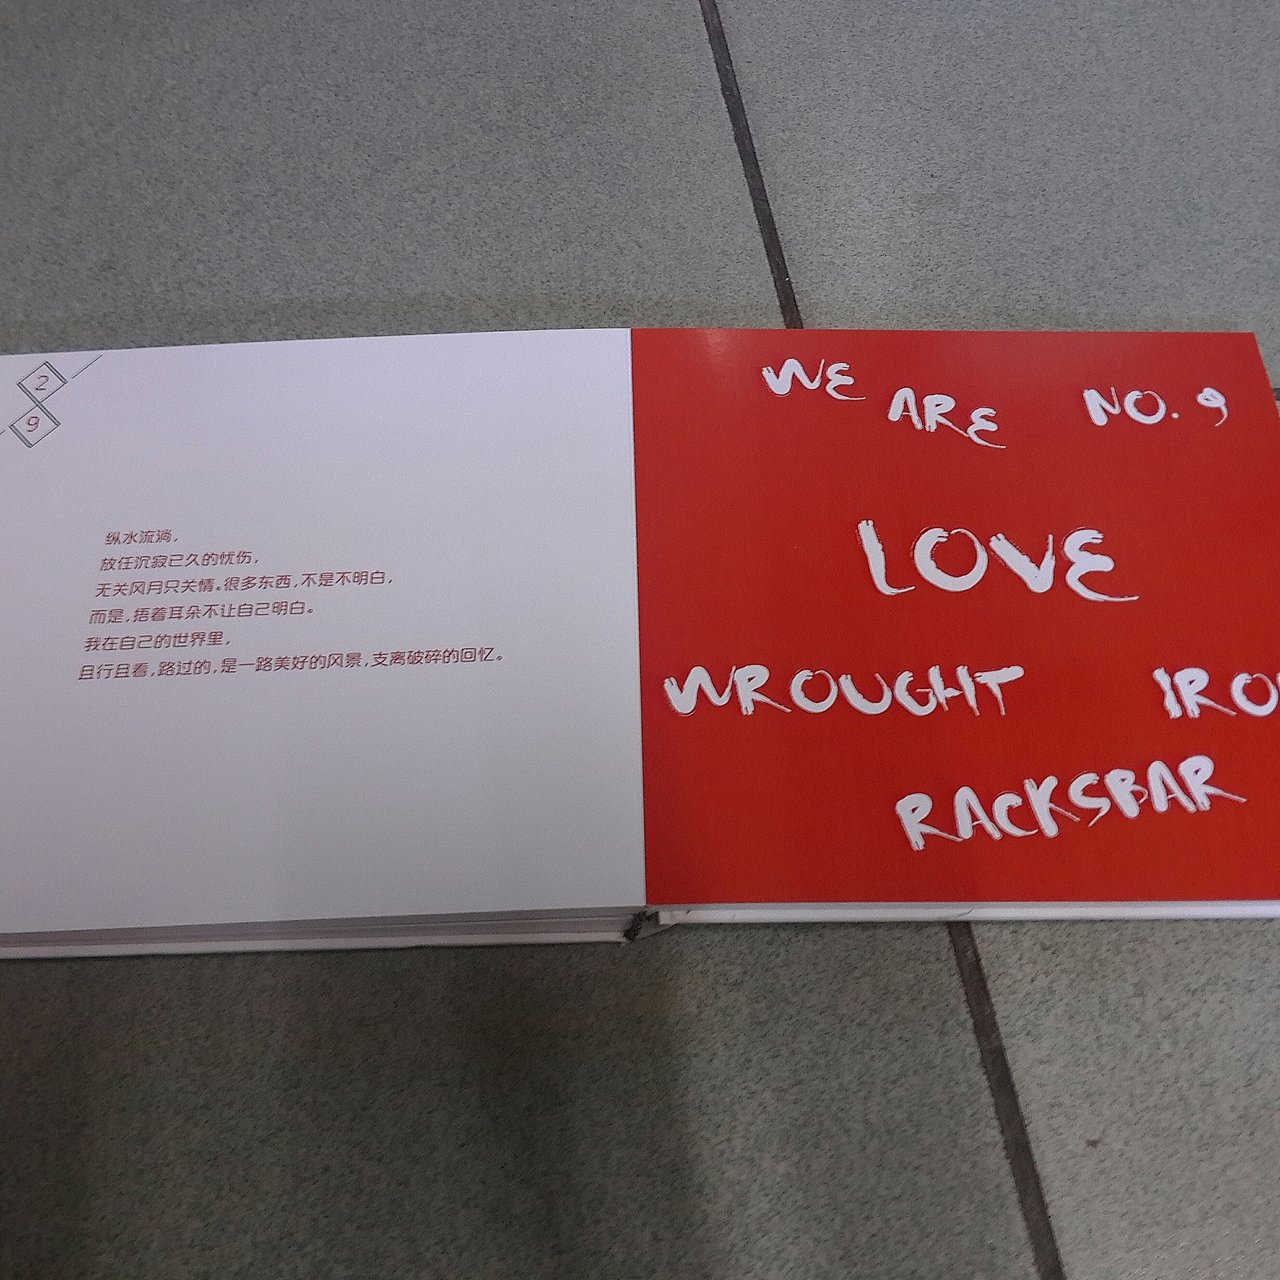 2
9
纵水流淌,
放任沉寂已久的忧伤,
无关风月只关情。很多东西,不是不明白,
而是,捂着耳朵不让自己明白。
我在自己的世界里,
且行且看,路过的,是一路美好的风景,支离破碎的回忆。
WE ARE NO. 9
LOVE
WROUGHT IRO
RACKSBAR